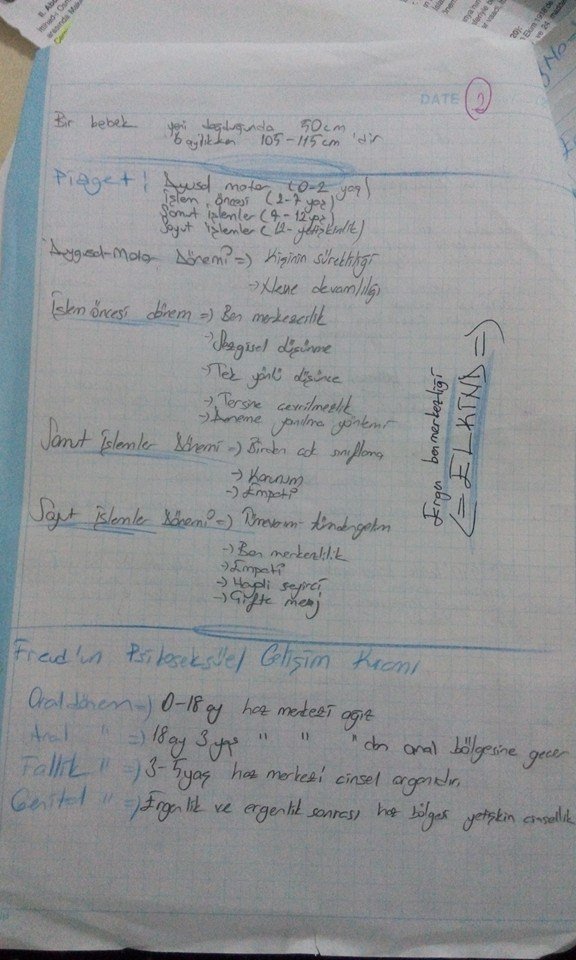 DATE 2
Bir bebek yeni doğduğunda 50cm
6 aylıkken 105-115cm 'dir
Piaget! Duyusal motor (0-2 yaş)
İşlem öncesi (2-7 yaş)
Somut işlemler (7-12 yaş)
Soyut işlemler (12-yetişkinlik)
Duygusal-Motor Dönemi => Kişinin sürekliliği
-> Nesne devamlılığı
İşlem öncesi dönem => Ben merkezcilik
-> Sezgisel düşünme
-> Tek yönlü düşünce
-> Tersine çevrilmezlik
-> Deneme yanılma yöntemi
Somut işlemler Dönemi => Birden çok sınıflama
-> Korunum
-> Empati
Soyut işlemler Dönemi => Tümevarım-tümdengelim
-> Ben merkezlilik
-> Empati
-> Hayali seyirci
-> Ergen benmerkezliği
<= ELKIND =>
Freud'un Psikoseksüel Gelişim Kuramı
Oral dönem => 0-18 ay haz merkezi ağız
Anal " => 18 ay 3 yaş " " " dan anal bölgesine geçer
Fallik " => 3-5 yaş haz merkezi cinsel organlıdır.
Genital " => Ergenlik ve ergenlik sonrası haz bölgesi yetişkin cinsellik